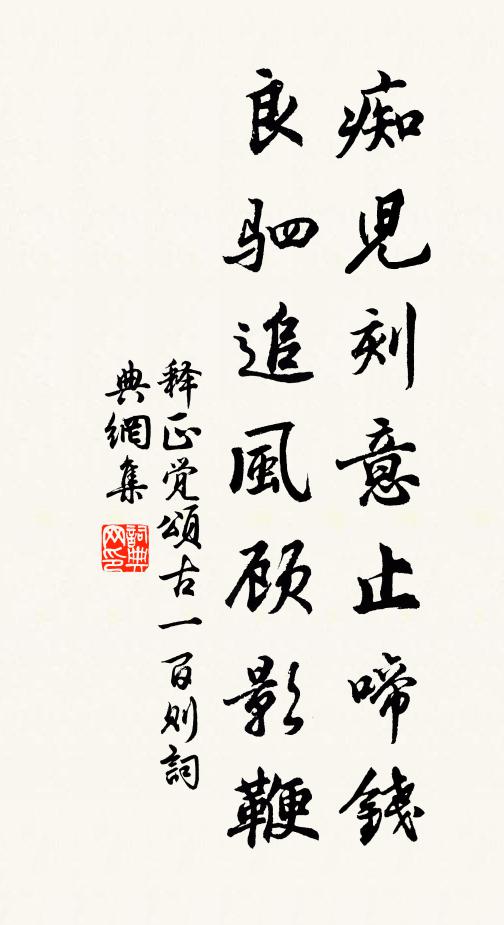 痴児刻意止啼錢
良驷追風顾影鞭
释正觉頌古一百则詞
典網集
詞典
网印